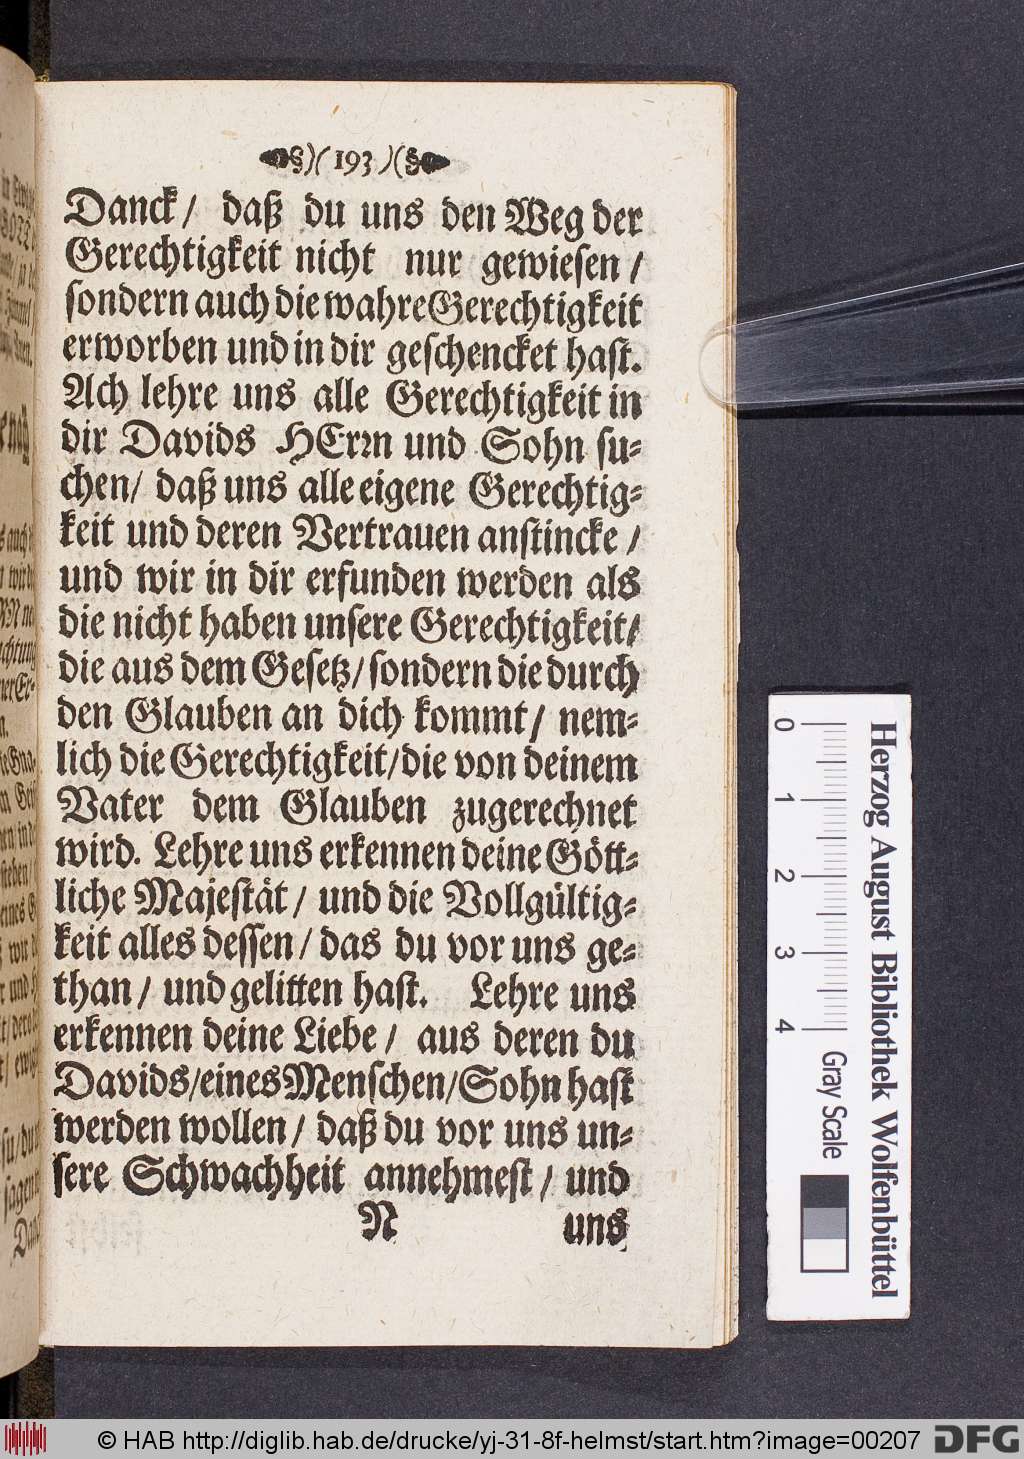 §)( 193 )(§
Danck/ daß du uns den Weg der
Gerechtigkeit nicht nur gewiesen/
sondern auch die wahre Gerechtigkeit
erworben und in dir geschencket hast.
Ach lehre uns alle Gerechtigkeit in
dir Davids HErrn und Sohn su-
chen/ daß uns alle eigene Gerechtig-
keit und deren Vertrauen anstincke/
und wir in dir erfunden werden als
die nicht haben unsere Gerechtigkeit/
die aus dem Gesetz/ sondern die durch
den Glauben an dich kommt/ nem-
lich die Gerechtigkeit/ die von deinem
Vater dem Glauben zugerechnet
wird. Lehre uns erkennen deine Gött-
liche Majestät/ und die Vollgültig-
keit alles dessen/ das du vor uns ge-
than/ und gelitten hast. Lehre uns
erkennen deine Liebe/ aus deren du
Davids/ eines Menschen/ Sohn hast
werden wollen/ daß du vor uns un-
sere Schwachheit annehmest/ und
N uns
0 1 2 3 4 Gray Scale
Herzog August Bibliothek Wolfenbüttel
© HAB http://diglib.hab.de/drucke/yj-31-8f-helmst/start.htm?image=00207 DFG